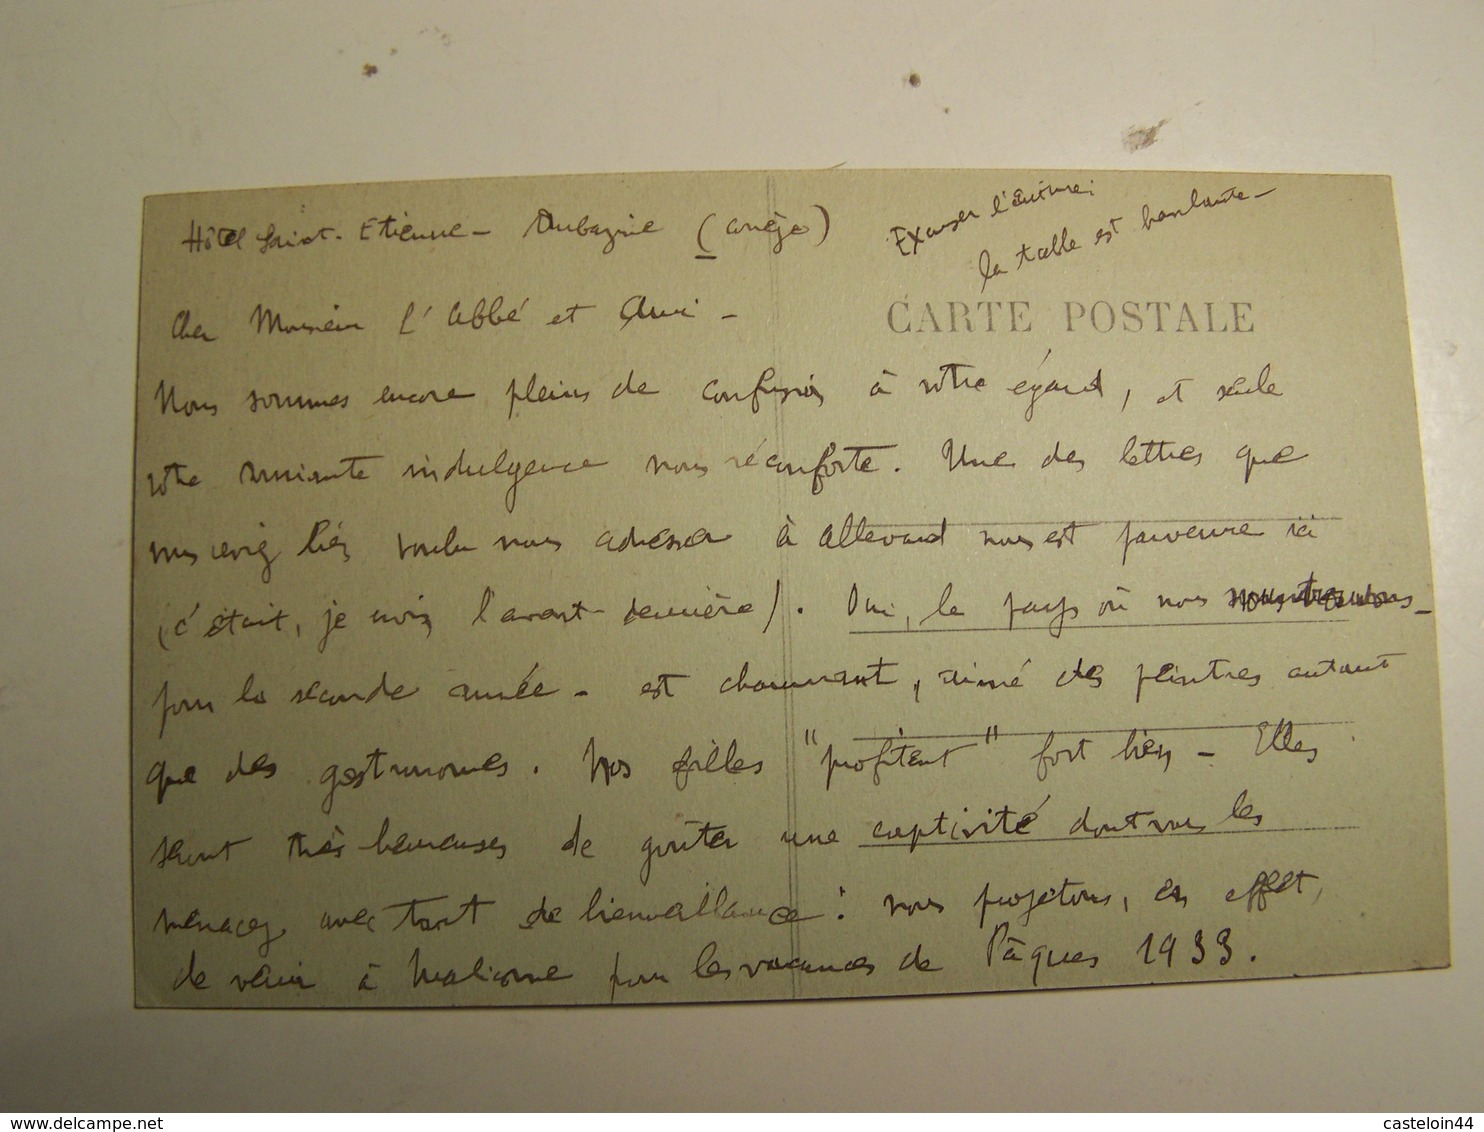 Hôtel Saint-Etienne - Aubazine (Corrèze)
Excuser l'écriture:
la table est branlante -
CARTE POSTALE
Cher Monsieur l'Abbé et Ami -
Nous sommes encore pleins de confusion à votre égard, et seule
votre souriante indulgence nous réconforte. Une des lettres que
vous aviez bien voulu nous adresser à Allevard nous est parvenue ici
(c'était, je crois, l'avant-dernière). Oui, le pays où nous nous trouvons -
pour la seconde année - est charmant, aimé des peintres autant
que des gastronomes. Nos filles "profitent" fort bien - Elles
seront très heureuses de goûter une captivité dont vous les
menacez avec tant de bienveillance: nous projetons, en effet,
de venir à Malicorne pour les vacances de Pâques 1933.
www.delcampe.net
casteloin44